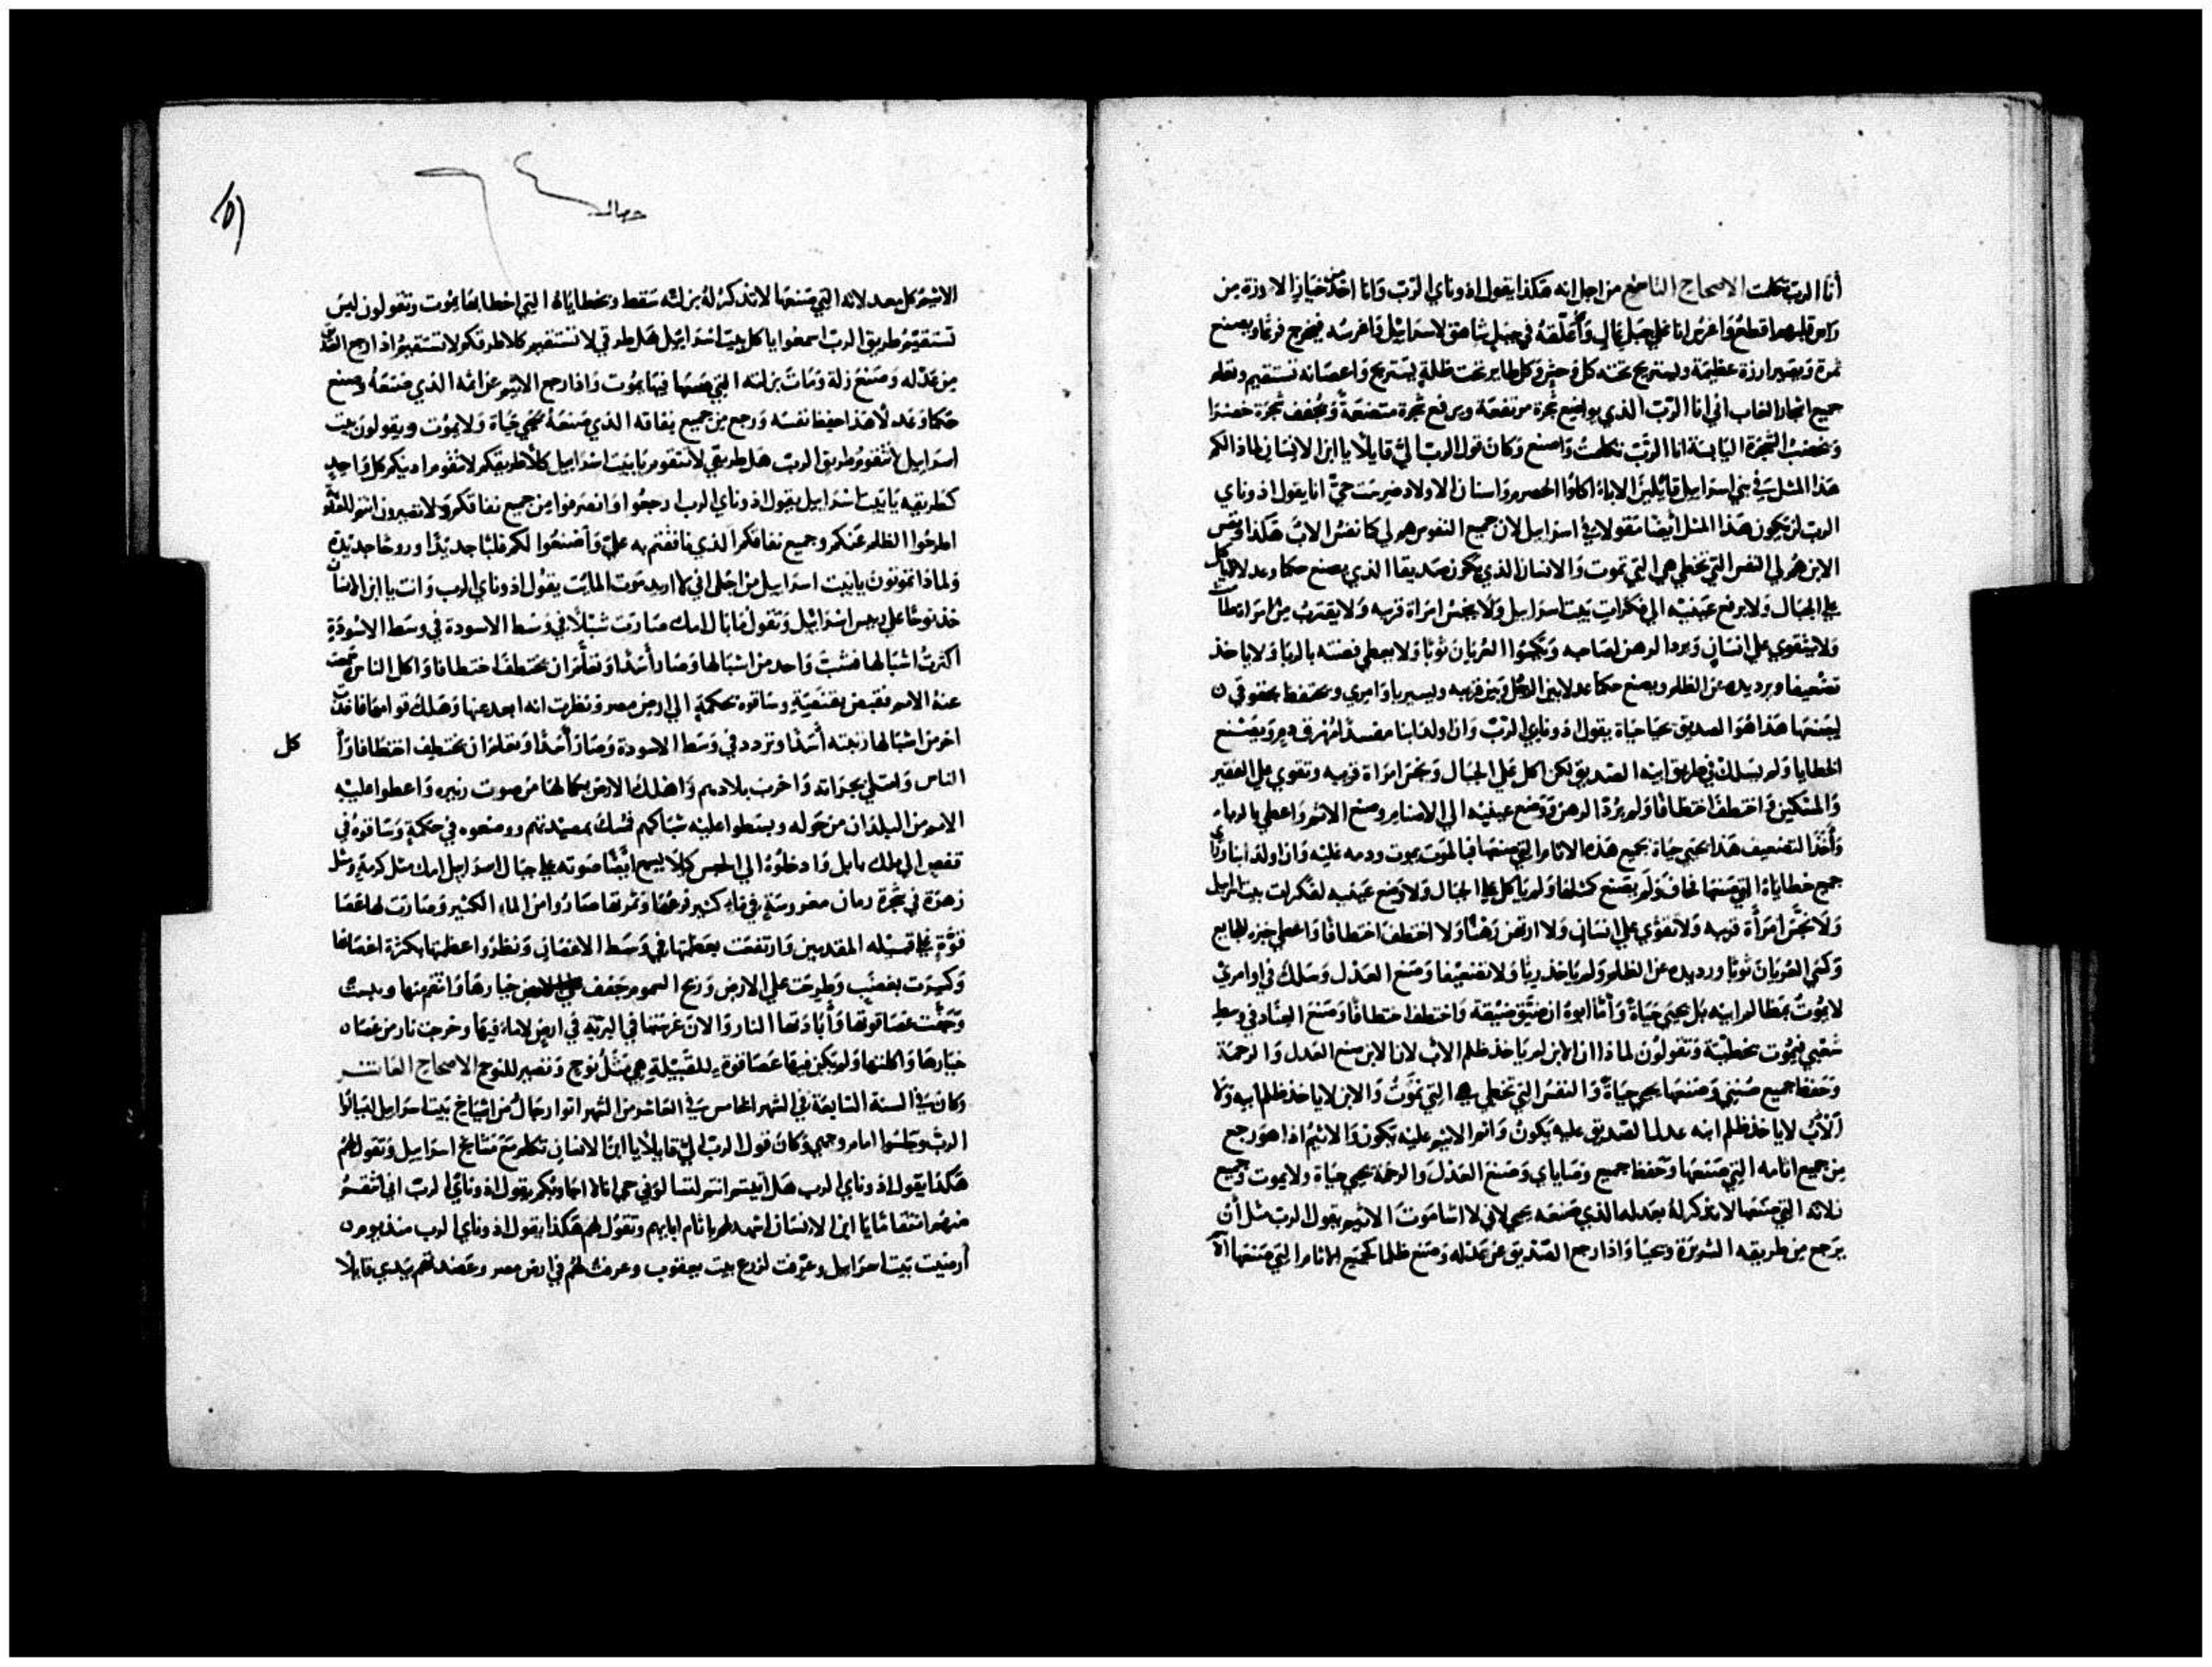 أنا الرب تكلمت الاصحاح التاسع من اجل انه هكذا يقول اذوناي الرب وانا اخذ من خيار الارزة من
راس قلبهما قطع واغرس انا على جبل عال وأعلقه في جبل شاهق لاسراييل فاغرسه فيخرج فرعًا ويصنع
ثمرة ويصير ارزة عظيمة ويستريح تحته كل وحش وكل طاير تحت ظله يستريح واغصانه تستقيم وتعلم
جميع اشجار الغاب اني انا الرب الذي يواضع شجرة مرتفعة ويرفع شجرة متضعة ويجفف شجرة خضرا
ويخضب الشجرة اليابسة انا الرب تكلمت واصنع وكان قول الرب اليّ قايلًا يا ابن الانسان لماذا لكم
هذا المثل في بني اسراييل قايلين الاباء اكلوا الحصرم واسنان الاولاد ضرست حيّ انا يقول اذوناي
الرب لن يكون هذا المثل ايضا مقولا في اسراييل لان جميع النفوس هم لي كما نفس الاب هكذا ونفس
الابن هم لي النفس التي تخطي هي التي تموت والانسان الذي يكون صديقا الذي يصنع حكما وعدلا لا ياكل
على الجبال ولا يرفع عينيه الى فكرات بيت اسراييل ولا ينجس امراة قريبه ولا يقترب من امراة طامث
ولا يتقوي على انسان ويرد الرهن لصاحبه ويكسوا العريان ثوبًا ولا يعطي فضته بالربا ولا ياخذ
تضعيفا ويرد يده عن الظلم ويصنع حكما عدلا بين الرجل وبين قريبه ويسير باوامري ويحتفظ بحقوقي ن
ليصنعها هذا هو الصديق حيا حياة يقول اذوناي الرب وان اولد ابنا مفسدًا مهرق دم ويصنع
الخطايا ولم يسلك في طريق ابيه الصديق لكن اكل على الجبال ونجس امراة قريبه وتقوي على الفقير
والمسكين واختطف اختطافا ولم يرد الرهن ووضع عينيه الى الاصنام وصنع الاثم واعطي بالرباء
وأخذ التضعيف هذا يحيي حياة بجميع هذه الاثام التي صنعها فبالموت يموت ودمه عليه واذا ولد ابنا وراى
جميع خطاياه التي صنعها فخاف ولم يصنع كمثلها ولم ياكل على الجبال ولا وضع عينيه لفكرات بيت اسراييل
ولا نجس امرأة قريبه ولا تقوي على انسان ولا ارتهن رهنًا ولا اختطف اختطافًا واعطي خبزه للجايع
وكسي العريان ثوبًا ورد يده عن الظلم ولم ياخذ ربًا ولا تضعيفا وصنع العدل وسلك في اوامري
لا يموت بمظالم ابيه بل يحيي حياةً وأما ابوه ان ضيق ضيقة واختطف اختطافًا وصنع العناد في وسط
شعبي فيموت بخطيّة وتقولون لماذا ان الابن لم ياخذ ظلم الاب لان الابن صنع العدل والرحمة
وحفظ جميع سنني وصنعها يحيى حياةً والنفس التي تخطي هي التي تموت والابن لا ياخذ ظلم ابيه ولا
الأب لا ياخذ ظلم ابنه عدل الصديق عليه يكون واثم الاثيم عليه يكون والاثيم اذا هو رجع
من جميع اثامه التي صنعها وحفظ جميع وصاياي وصنع العدل والرحمة يحيى حياة ولا يموت وجميع
زلاته التي صنعها لا تذكر له بعدله الذي صنعه يحيى لاني لا اشا موت الاثيم يقول الرب مثل أن
يرجع من طريقه الشريرة ويحيا واذا رجع الصديق عن عدله وصنع ظلما كجميع الاثام التي صنعها الا
الاثيم كل بعدلاته التي صنعها لا تذكر له بزلته سقط وبخطاياه التي اخطا بها يموت وتقولون ليس
تستقيم طريق الرب اسمعوا يا كل بيت اسراييل هل طرقي لا تستقيم كلا طرقكم لا تستقيم اذا رجع الصديق
من عدله وصنع زلة ومات بزلته التي صنعها فيها يموت واذا رجع الاثيم عن اثمه الذي صنعه وصنع
حكما وعدلا هذا حفظ نفسه ورجع من جميع نفاقه الذي صنعه يحيى حياة ولا يموت ويقولون بيت
اسراييل لا تقوم طريق الرب هل طريقي لا تقوم يا بيت اسراييل كلا طريقكم لا تقوم ادينكم كل واحد
كطريقه يا بيت اسراييل يقول اذوناي الرب ارجعوا وانصرفوا من جميع نفاقكم ولا تصيرون انتم للظلم
اطرحوا الظلم عنكم وجميع نفاقكم الذي نافقتم به عليّ وأصنعوا لكم قلبًا جديدًا وروحًا جديدة
ولماذا تموتون يا بيت اسراييل من اجل اني لا اريد موت المايت يقول اذوناي الرب وانت يا ابن الانسان
خذ نوحًا على ريس اسراييل وتقول ما بال امك صارت شبلًا في وسط الاسودة في وسط الاسودة
اكثرت اشبالها فشب واحد من اشبالها وصار أسدًا وتعلم ان يختطف اختطافا واكل الناس سمعت
عنه الامم فقبض بقنصية وساقوه بحكمة الى ارض مصر ونظرت انه ابعد عنها وهلك قوامها فاقامت
اخر من اشبالها رتبته أسدًا وتردد في وسط الاسودة وصار أسدًا وتعلم ان يختطف اختطافا وأكل
الناس وامتلي بجراته واخرب بلادهم واهلك الارض بكمالها من صوت زئيره واعطوا عليه
الامم من البلدان من حوله وبسطوا عليه شباكهم فمسك بمصيدتهم ووضعوه في حكمة وساقوه في
قفص الى ملك بابل وادخلوه الى الحبس كيلا يسمع أيضًا صوته على جبال اسراييل امك مثل كرمة ومثل
زهرة في شجرة رمان مغروسة في ماء كثير فرعها وثمرتها صاروا من الماء الكثير وصارت لها عصا
قوة على قبيله المقدمين وارتفعت بعظمتها في وسط الاغصان ونظروا عظمتها بكثرة اغصانها
وكسرت بغضب وطرحت على الارض وريح السموم جفف خيارها وانتقم منها ويبست
وجفت عصا قوتها وأبادتها النار والان غرستها في البرية في ارض لا ماء فيها وخرجت نار من عصاه
خيارها واكلتها ولم يكن فيها عصا قوة للقبيلة هي مثل نوح وتصير للنوح الاصحاح العاشر
وكان في السنة السابعة في الشهر الخامس في العاشر من الشهر اتوا رجال من اشياخ بيت اسراييل ليسالوا
الرب وجلسوا امام وجهي وكان قول الرب اليّ قايلًا يا ابن الانسان تكلم مع مشايخ اسراييل وتقول لهم
هكذا يقول اذوناي الرب هل أتيتم انتم لتسالوني حي انا لا اجاوبكم يقول اذوناي الرب اني انتقم
منهم انتقامًا يا ابن الانسان اشهد لهم باثام ابايهم وتقول لهم هكذا يقول اذوناي الرب منذ يوم ن
أرضيت بيت اسراييل وعرفت لزرع بيت يعقوب وعرفت لهم في ارض مصر وعضدتهم بيدي قايلًا